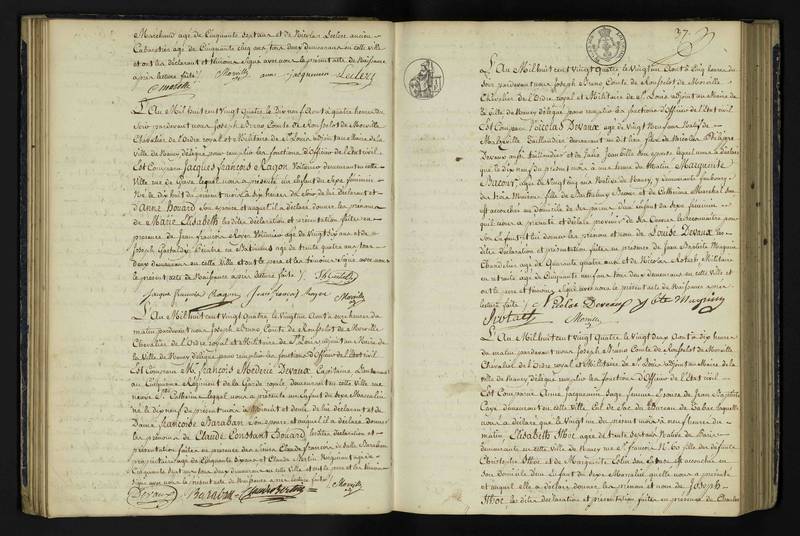 Marchand agé de Cinquante sept ans et de Nicolas Leclerc ancien
Cabaretier agé de Cinquante cinq ans tous deux demeurans en cette ville
et ont les déclarant et témoins signé avec nous le présent acte de Naissance
après lecture faite /. Morville jacquemin Leclerc
L'An Mil huit cent Vingt Quatre le Dix neuf Aout à quatre heures du
Soir pardevant nous Joseph Bruno Comte de Rousselot de Morville
Chevalier de l'Ordre royal et Militaire de St Louis adjoint au Maire de la
Ville de Nancy délégué pour remplir les fonctions d'Officier de l'Etat civil.
Est Comparu Jacques François Ragon Voiturier demeurant en cette
Ville rue de Grève lequel nous a présenté un Enfant du Sexe féminin
Né le dix huit du présent mois à dix heures du Soir de lui déclarant et
d'Anne Houard son épouse et auquel il a déclaré donner les prénoms
de Marie Elisabeth les dites déclaration et présentation faites en
présence de Jean François Royer Voiturier agé de Vingt six ans et de
Joseph Peintre en Batimens agé de trente quatre ans tous
deux demeurans en cette Ville et ont le pere et les témoins signé avec nous
le présent acte de Naissance après lecture faite /.
Jacque François Ragon Jean François Royer Morville
L'An Mil huit cent Vingt Quatre, le Vingt Aout à onze heures du
matin pardevant nous Joseph Bruno Comte de Rousselot de Morville
Chevalier de l'Ordre royal et Militaire de St Louis adjoint au Maire de
la Ville de Nancy délégué pour remplir les fonctions d'Officier de l'Etat civil
Est Comparu Mr François Médéric Devaux Capitaine Lieutenant
au Cinquième Régiment de la Garde royale demeurant en cette Ville rue
neuve Ste Catherine lequel nous a présenté un Enfant du Sexe Masculin
né le dix neuf du présent mois à Minuit et demi de lui déclarant et de
Dame Françoise Baraban son épouse et auquel il a déclaré donner
les prénoms de Claude Constant Édouard les dites déclaration et
présentation faites en présence des sieurs Claude François de Salle Baraban
propriétaire agé de Cinquante Six ans et Claude Bertin Négociant agé de
Cinquante Sept ans tous deux demeurans en cette Ville et ont le pere et les témoins
signé avec nous le présent acte de Naissance après lecture faite /. Morville
Devaux Baraban Claude Bertin
37
L'An Mil huit cent Vingt Quatre le Vingt un Aout à Cinq heures du
Soir pardevant nous Joseph Bruno Comte de Rousselot de Morville
Chevalier de l'Ordre royal et Militaire de St Louis adjoint au Maire de
la Ville de Nancy délégué pour remplir les fonctions d'Officier de l'Etat civil
Est Comparu Nicolas Devaux agé de Vingt Neuf ans Natif de
Taillandier demeurant au dit lieu fils de Nicolas
Devaux aussi Taillandier et de Marie Jeanville son épouse, lequel nous a déclaré
que le dix neuf du présent mois à une heure du Matin Marguerite
Bacour, agée de Vingt cinq ans Native de Nancy, y demeurante faubourg
des trois Maisons, fille de Barthelemy Bacour et de Catherine Marchal son
est accouchée au domicile de sa mère d'un Enfant du Sexe féminin
qu'il nous a présenté et déclaré provenir de ses Oeuvres le reconnaitre pour
son Enfant et lui donner les prénom et nom de Louise Devaux les
dites déclaration et présentation faites en présence de Jean Baptiste Maguin
Chandelier agé de Quarante quatre ans et de Nicolas Militaire
en retraite agé de Cinquante neuf ans tous deux demeurans en cette Ville et
ont le pere et témoins signé avec nous le présent acte de Naissance après
lecture faite /. Nicolas Devaux
Morville
L'An Mil huit cent Vingt Quatre le Vingt deux Aout à dix heures
du matin pardevant nous Joseph Bruno Comte de Rousselot de Morville
Chevalier de l'Ordre royal et Militaire de St Louis adjoint au Maire de la
ville de Nancy délégué pour remplir les fonctions d'Officier de l'Etat civil.
Est Comparue Anne Jacquemin Sage femme, Epouse de Jean Baptiste
Caye demeurant en cette Ville Cul de Sac du Bureau de Tabac laquelle
nous a déclaré que le Vingt un du présent mois à neuf heures du
matin, Elisabeth Thoz agée de trente Sept ans Native de
demeurante en cette Ville de Nancy rue St François No 60 fille des défunts
Christophe Thoz et de Marguerite Colin son Epouse est accouchée en
son domicile d'un Enfant du Sexe Masculin qu'elle nous a présenté
et auquel elle a déclaré donner les prénom et nom de Joseph
Thoz les dites déclaration et présentation faites en présence de Charles